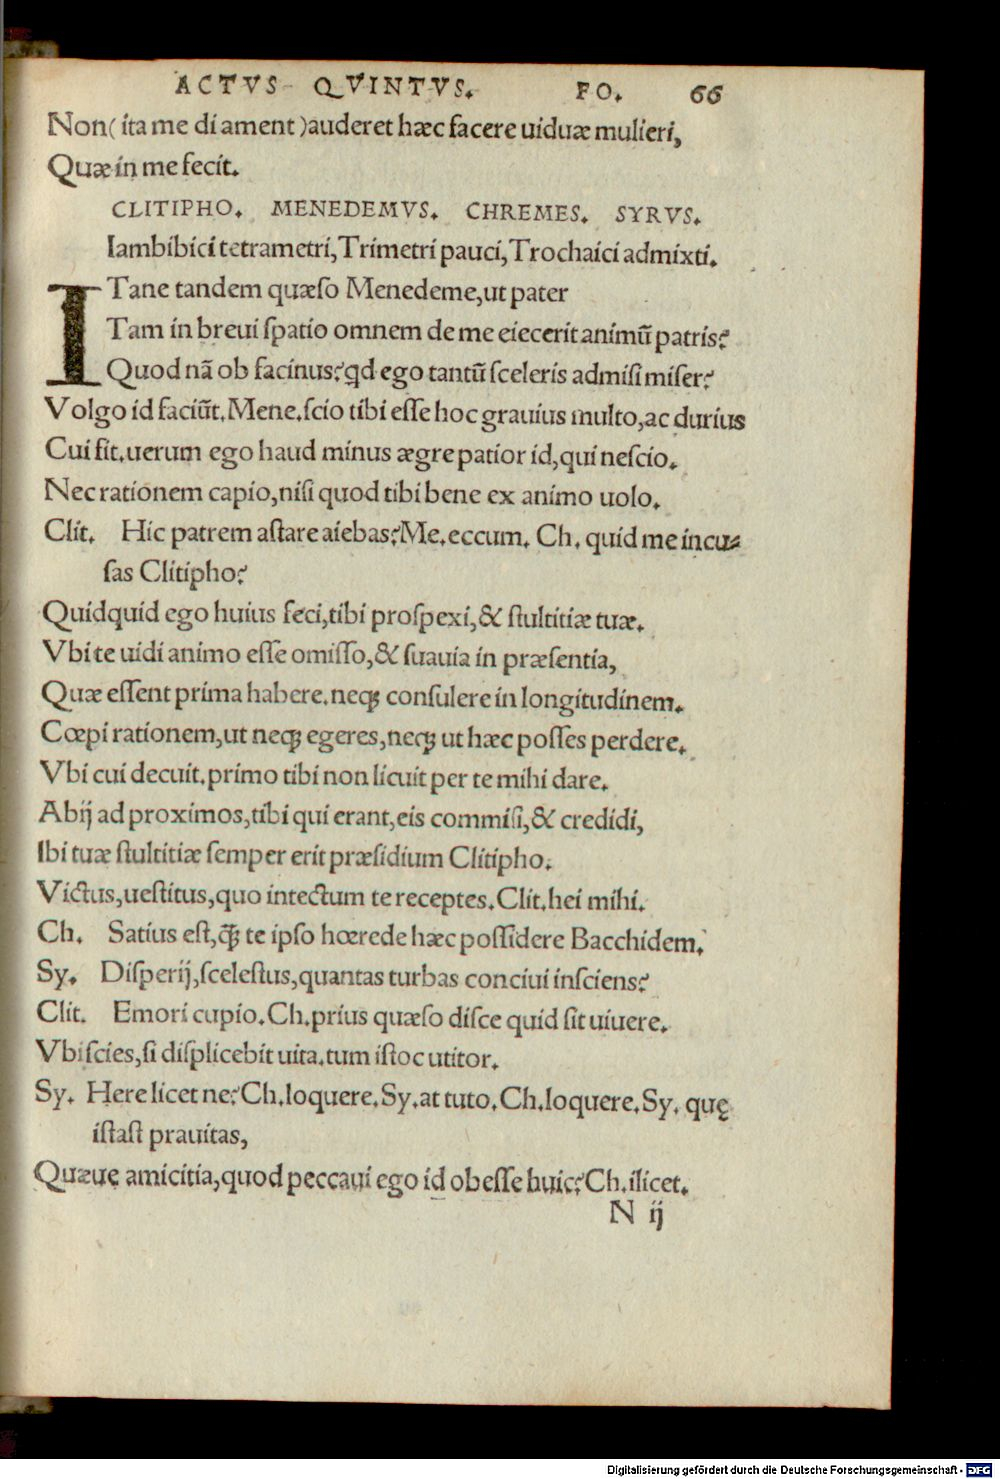 ACTVS QVINTVS. FO. 66
Non( ita me di ament )auderet hæc facere uiduæ mulieri,
Quæ in me fecit.
CLITIPHO. MENEDEMVS. CHREMES. SYRVS.
Iambibici tetrametri, Trimetri pauci, Trochaici admixti.
ITane tandem quæso Menedeme, ut pater
Tam in breui spatio omnem de me eiecerit animũ patris?
Quod nã ob facinus? qd ego tantũ sceleris admisi miser?
Volgo id faciũt. Mene. scio tibi esse hoc grauius multo, ac durius
Cui fit. uerum ego haud minus ægre patior id, qui nescio.
Nec rationem capio, nisi quod tibi bene ex animo uolo.
Clit. Hic patrem astare aiebas? Me. eccum. Ch. quid me incu-
sas Clitipho?
Quidquid ego huius feci, tibi prospexi, & stultitiæ tuæ.
Vbi te uidi animo esse omisso, & suauia in præsentia,
Quæ essent prima habere. neqꝫ consulere in longitudinem.
Cœpi rationem, ut neqꝫ egeres, neqꝫ ut hæc posses perdere.
Vbi cui decuit. primo tibi non licuit per te mihi dare.
Abij ad proximos, tibi qui erant, eis commisi, & credidi,
Ibi tuæ stultitiæ semper erit præsidium Clitipho.
Victus, uestitus, quo intectum te receptes. Clit. hei mihi.
Ch. Satius est, q̃ꝫ te ipso hœrede hæc possidere Bacchidem.
Sy. Disperij, scelestus, quantas turbas conciui insciens?
Clit. Emori cupio. Ch. prius quæso disce quid sit uiuere.
Vbi scies, si displicebit uita. tum istoc utitor.
Sy. Here licet ne? Ch. loquere. Sy. at tuto. Ch. loquere. Sy. quę
istast prauitas,
Quæuę amicitia, quod peccaui ego id obesse huic? Ch. ilicet.
N ij
Digitalisierung gefördert durch die Deutsche Forschungsgemeinschaft - DFG